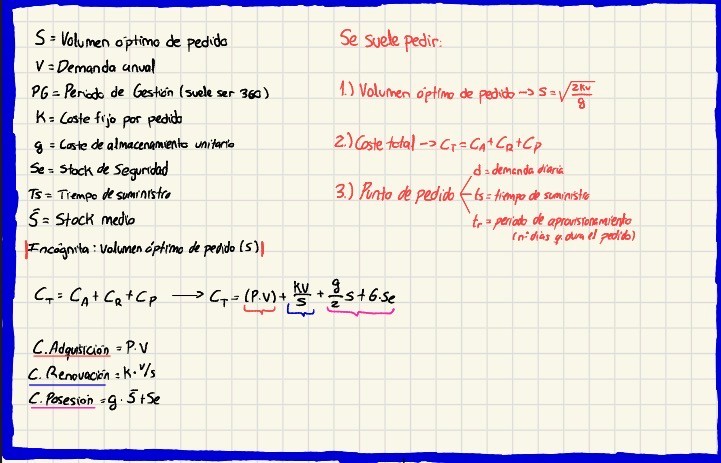 S = Volumen óptimo de pedido
V = Demanda anual
PG = Periodo de Gestión (suele ser 360)
K = Coste fijo por pedido
g = Coste de almacenamiento unitario
Se = Stock de Seguridad
Ts = Tiempo de suministro
S̄ = Stock medio
|Incógnita: Volumen óptimo de pedido (S)|
C_T = C_A + C_R + C_P → C_T = (P·V) + KV/S + g/2 S + G·Se
C. Adquisición = P·V
C. Renovación = K·V/s
C. Posesion = g·S̄ + Se
Se suele pedir:
1.) Volumen óptimo de pedido → S = √(2KV/g)
2.) Coste total → C_T = C_A + C_R + C_P
3.) Punto de pedido
d = demanda diaria
ts = tiempo de suministro
tr = periodo de aprovisionamiento
(nº dias q. dura el pedido)